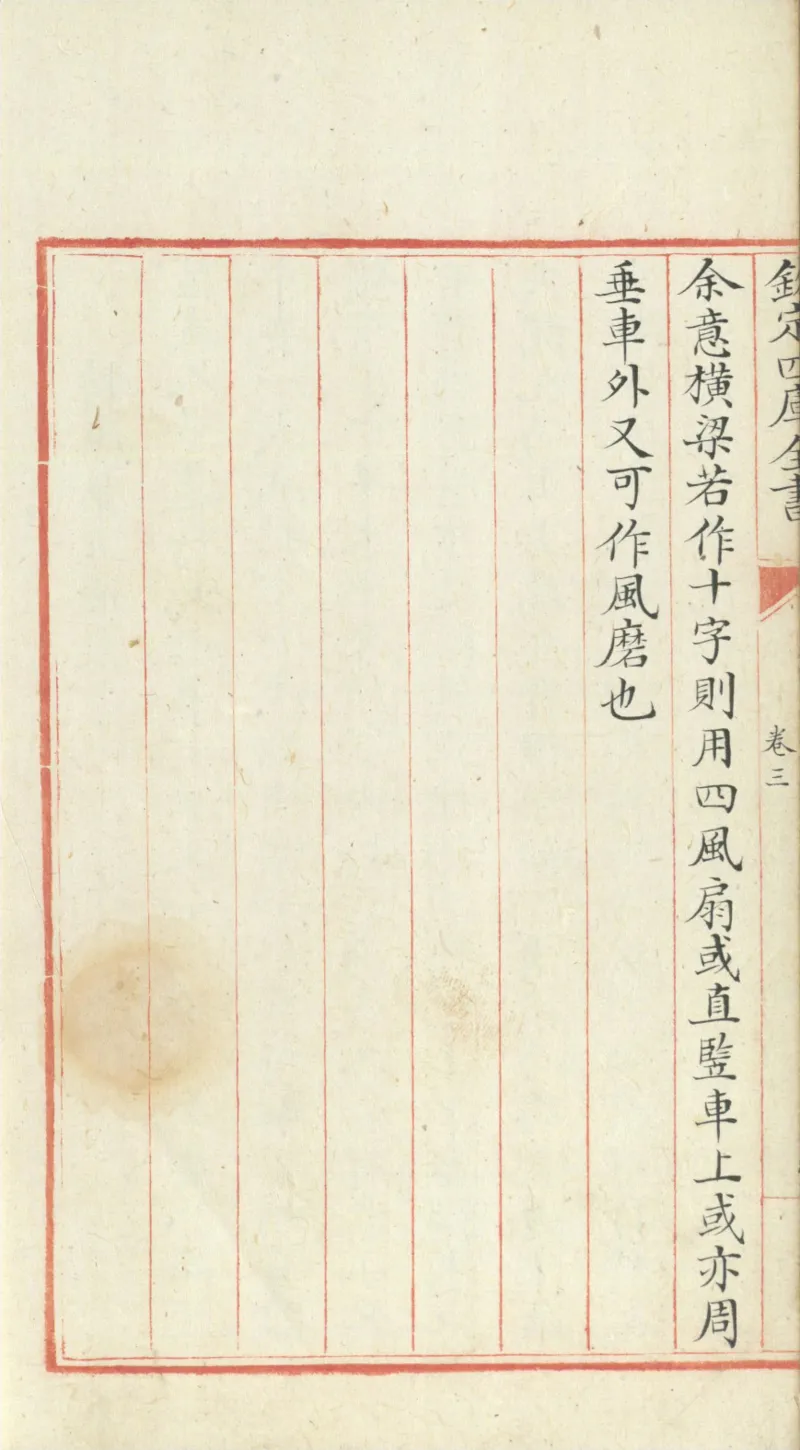 欽定四庫全書
卷三
余意橫梁若作十字則用四風扇或直豎車上或亦周
垂車外又可作風磨也